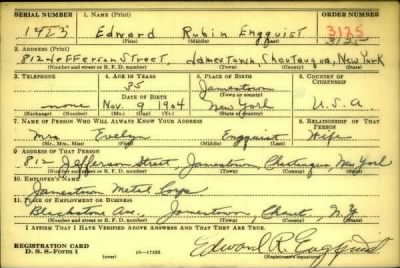 SERIAL NUMBER 1. NAME (Print) ORDER NUMBER
Edward Rubin Engquist 3125
(First) (Middle) (Last)
2. ADDRESS (Print)
812 Jefferson Street, Jamestown Chautauqua, New York
(Number and street or R. F. D. number) (Town) (County) (State)
3. TELEPHONE 4. AGE IN YEARS 5. PLACE OF BIRTH 6. COUNTRY OF CITIZENSHIP
35 Jamestown
DATE OF BIRTH (Town or county)
none Nov. 9 1904 New York U.S.A.
(Mo.) (Day) (Yr.) (State or country)
7. NAME OF PERSON WHO WILL ALWAYS KNOW YOUR ADDRESS 8. RELATIONSHIP OF THAT PERSON
Mrs Evelyn Engquist Wife
(Mr., Mrs., Miss) (First) (Middle) (Last)
9. ADDRESS OF THAT PERSON
812 Jefferson Street, Jamestown, Chautauqua, New York
(Number and street or R. F. D. number) (Town) (County) (State)
10. EMPLOYER'S NAME
Jamestown Metal Corp.
11. PLACE OF EMPLOYMENT OR BUSINESS
Blackstone Ave. Jamestown, Chaut., N.Y.
(Number and street or R. F. D. number) (Town) (County) (State)
I AFFIRM THAT I HAVE VERIFIED ABOVE ANSWERS AND THAT THEY ARE TRUE.
REGISTRATION CARD
D. S. S. Form 1 (over) Edward R. Engquist
(Registrant's signature)